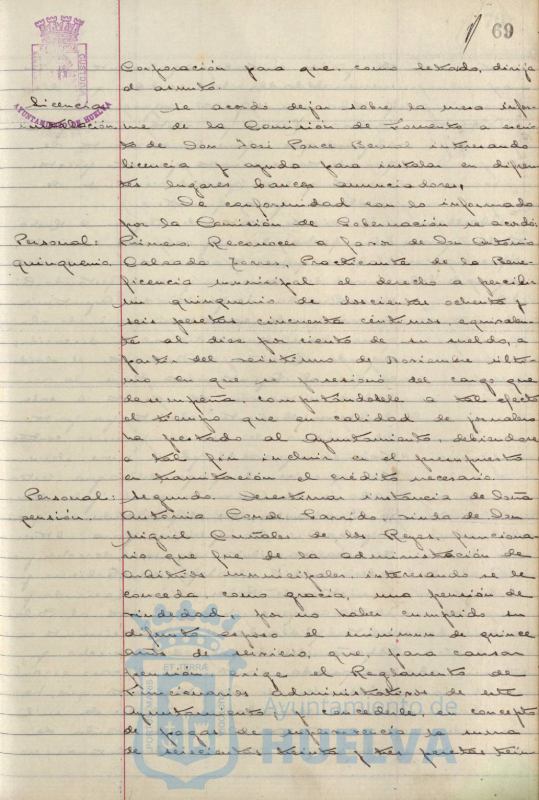 69
Corporación para que, como letrado, dirija
el asunto.
Licencia
instalación.
Se acordó dejar sobre la mesa infor-
me de la Comisión de Fomento a escri-
to de Don José Ponce Bernal interesando
licencia y ayuda para instalar en diferen-
tes lugares bancos anunciadores.
De conformidad con lo informado
por la Comisión de Gobernación se acordó:
Personal:
quinquenio.
Primero. Reconocer a favor de Don Antonio
Calzada Torres, Practicante de la Bene-
ficencia municipal el derecho a percibir
un quinquenio de doscientas ochenta y
seis pesetas, cincuenta céntimos, equivalen-
te al diez por ciento de su sueldo, a
partir del veintiuno de Noviembre últi-
mo en que se posesionó del cargo que
desempeña, computándosele a tal efecto
el tiempo que en calidad de jornalero
ha prestado al Ayuntamiento, debiéndose
a tal fin incluir en el presupuesto
en tramitación el crédito necesario.
Personal:
pensión.
Segundo. Desestimar instancia de Doña
Antonia Conde Garrido, viuda de Don
Miguel Cuñales de los Reyes, funciona-
rio que fue de la administración de
Arbitrios municipales, interesando se le
conceda, como gracia, una pensión de
viudedad, por no haber cumplido su
difunto esposo el mínimum de quince
años de servicio, que, para causar
pensión exige el Reglamento de
Funcionarios administrativos de este
Ayuntamiento y concederle, en concepto
de pagas de supervivencia la suma
de seiscientas treinta y tres pesetas trein-
AYUNTAMIENTO DE HUELVA
Ayuntamiento de
HUELVA